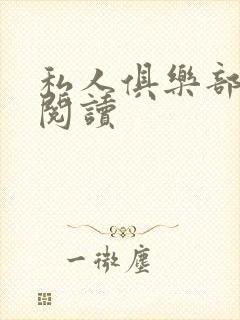 私人俱樂部
閱讀
一微塵